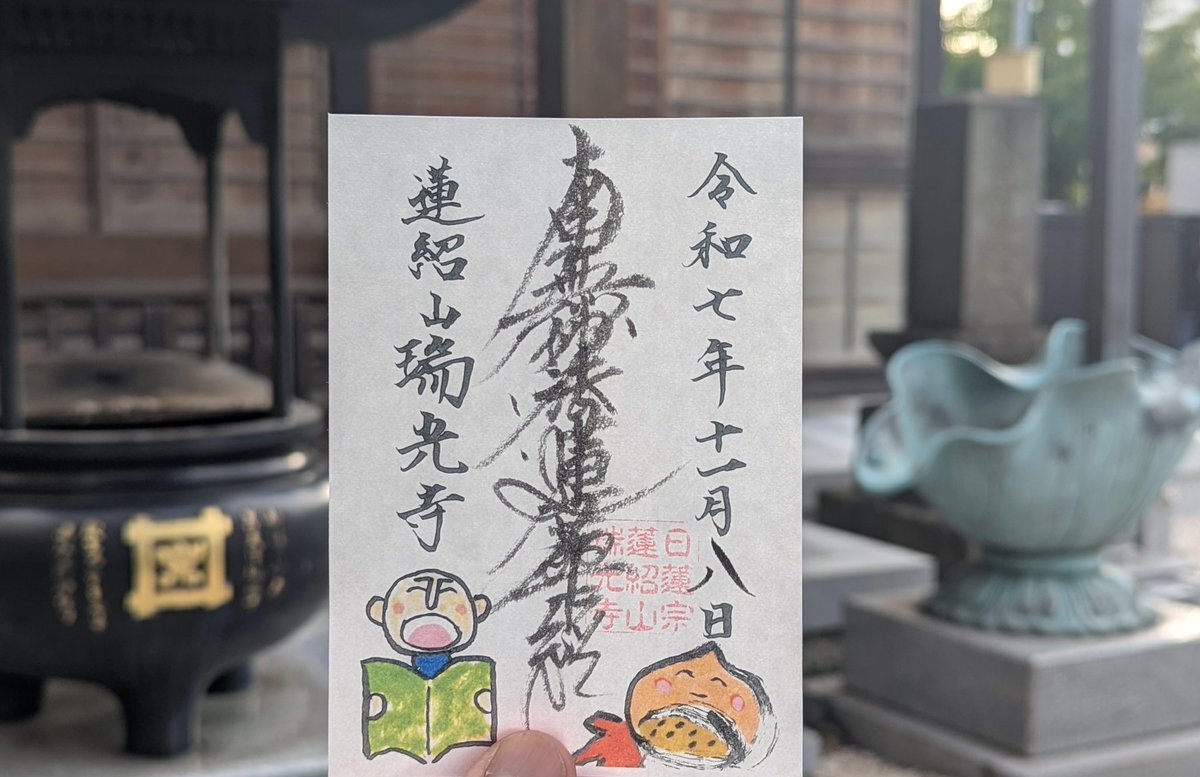 令和七年十一月八日
南無妙法蓮華経
蓮紹山瑞光寺
日蓮宗
蓮紹山
瑞光寺